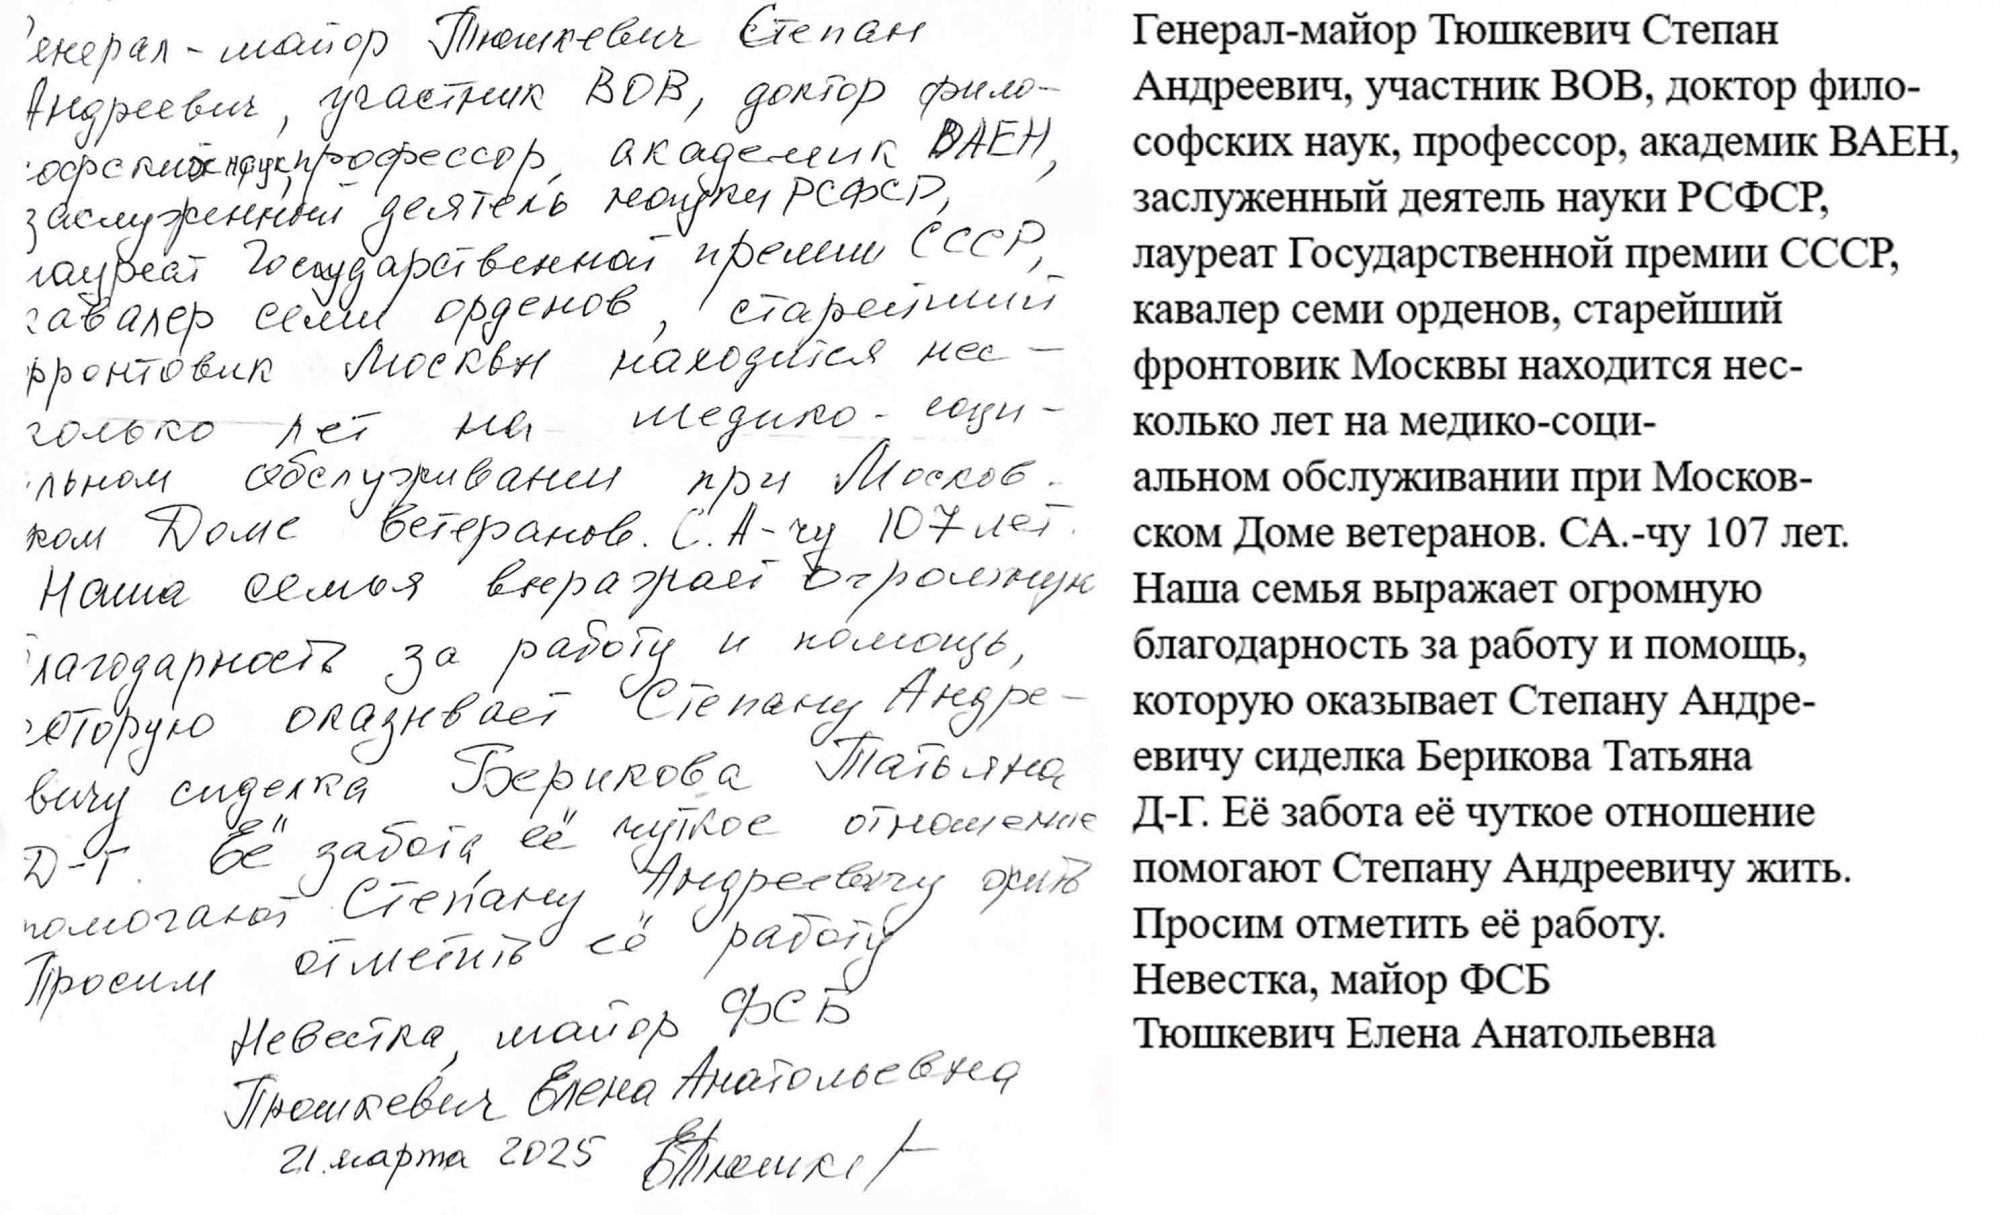 Генерал-майор Тюшкевич Степан
Андреевич, участник ВОВ, доктор фило-
софских наук, профессор, академик ВАЕН,
заслуженный деятель науки РСФСР,
лауреат Государственной премии СССР,
кавалер семи орденов, старейший
фронтовик Москвы находится нес-
колько лет на медико-соци-
альном обслуживании при Москов-
ком Доме ветеранов. С.А-чу 107 лет.
Наша семья выражает огромную
благодарность за работу и помощь,
которую оказывает Степану Андре-
вичу сиделка Берикова Татьяна
Д-Г. Её забота, её чуткое отношение
помогают Степану Андреевичу жить
Просим отметить её работу
Невестка, майор ФСБ
Тюшкевич Елена Анатольевна
21 марта 2025
Генерал-майор Тюшкевич Степан
Андреевич, участник ВОВ, доктор фило-
софских наук, профессор, академик ВАЕН,
заслуженный деятель науки РСФСР,
лауреат Государственной премии СССР,
кавалер семи орденов, старейший
фронтовик Москвы находится нес-
колько лет на медико-соци-
альном обслуживании при Москов-
ском Доме ветеранов. СА.-чу 107 лет.
Наша семья выражает огромную
благодарность за работу и помощь,
которую оказывает Степану Андре-
евичу сиделка Берикова Татьяна
Д-Г. Её забота её чуткое отношение
помогают Степану Андреевичу жить.
Просим отметить её работу.
Невестка, майор ФСБ
Тюшкевич Елена Анатольевна